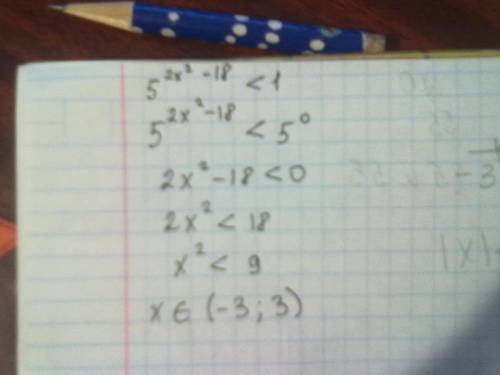 5^{2x^2-18} < 1
5^{2x^2-18} < 5^0
2x^2-18<0
2x^2 < 18
x^2 < 9
x ∈ (-3; 3)